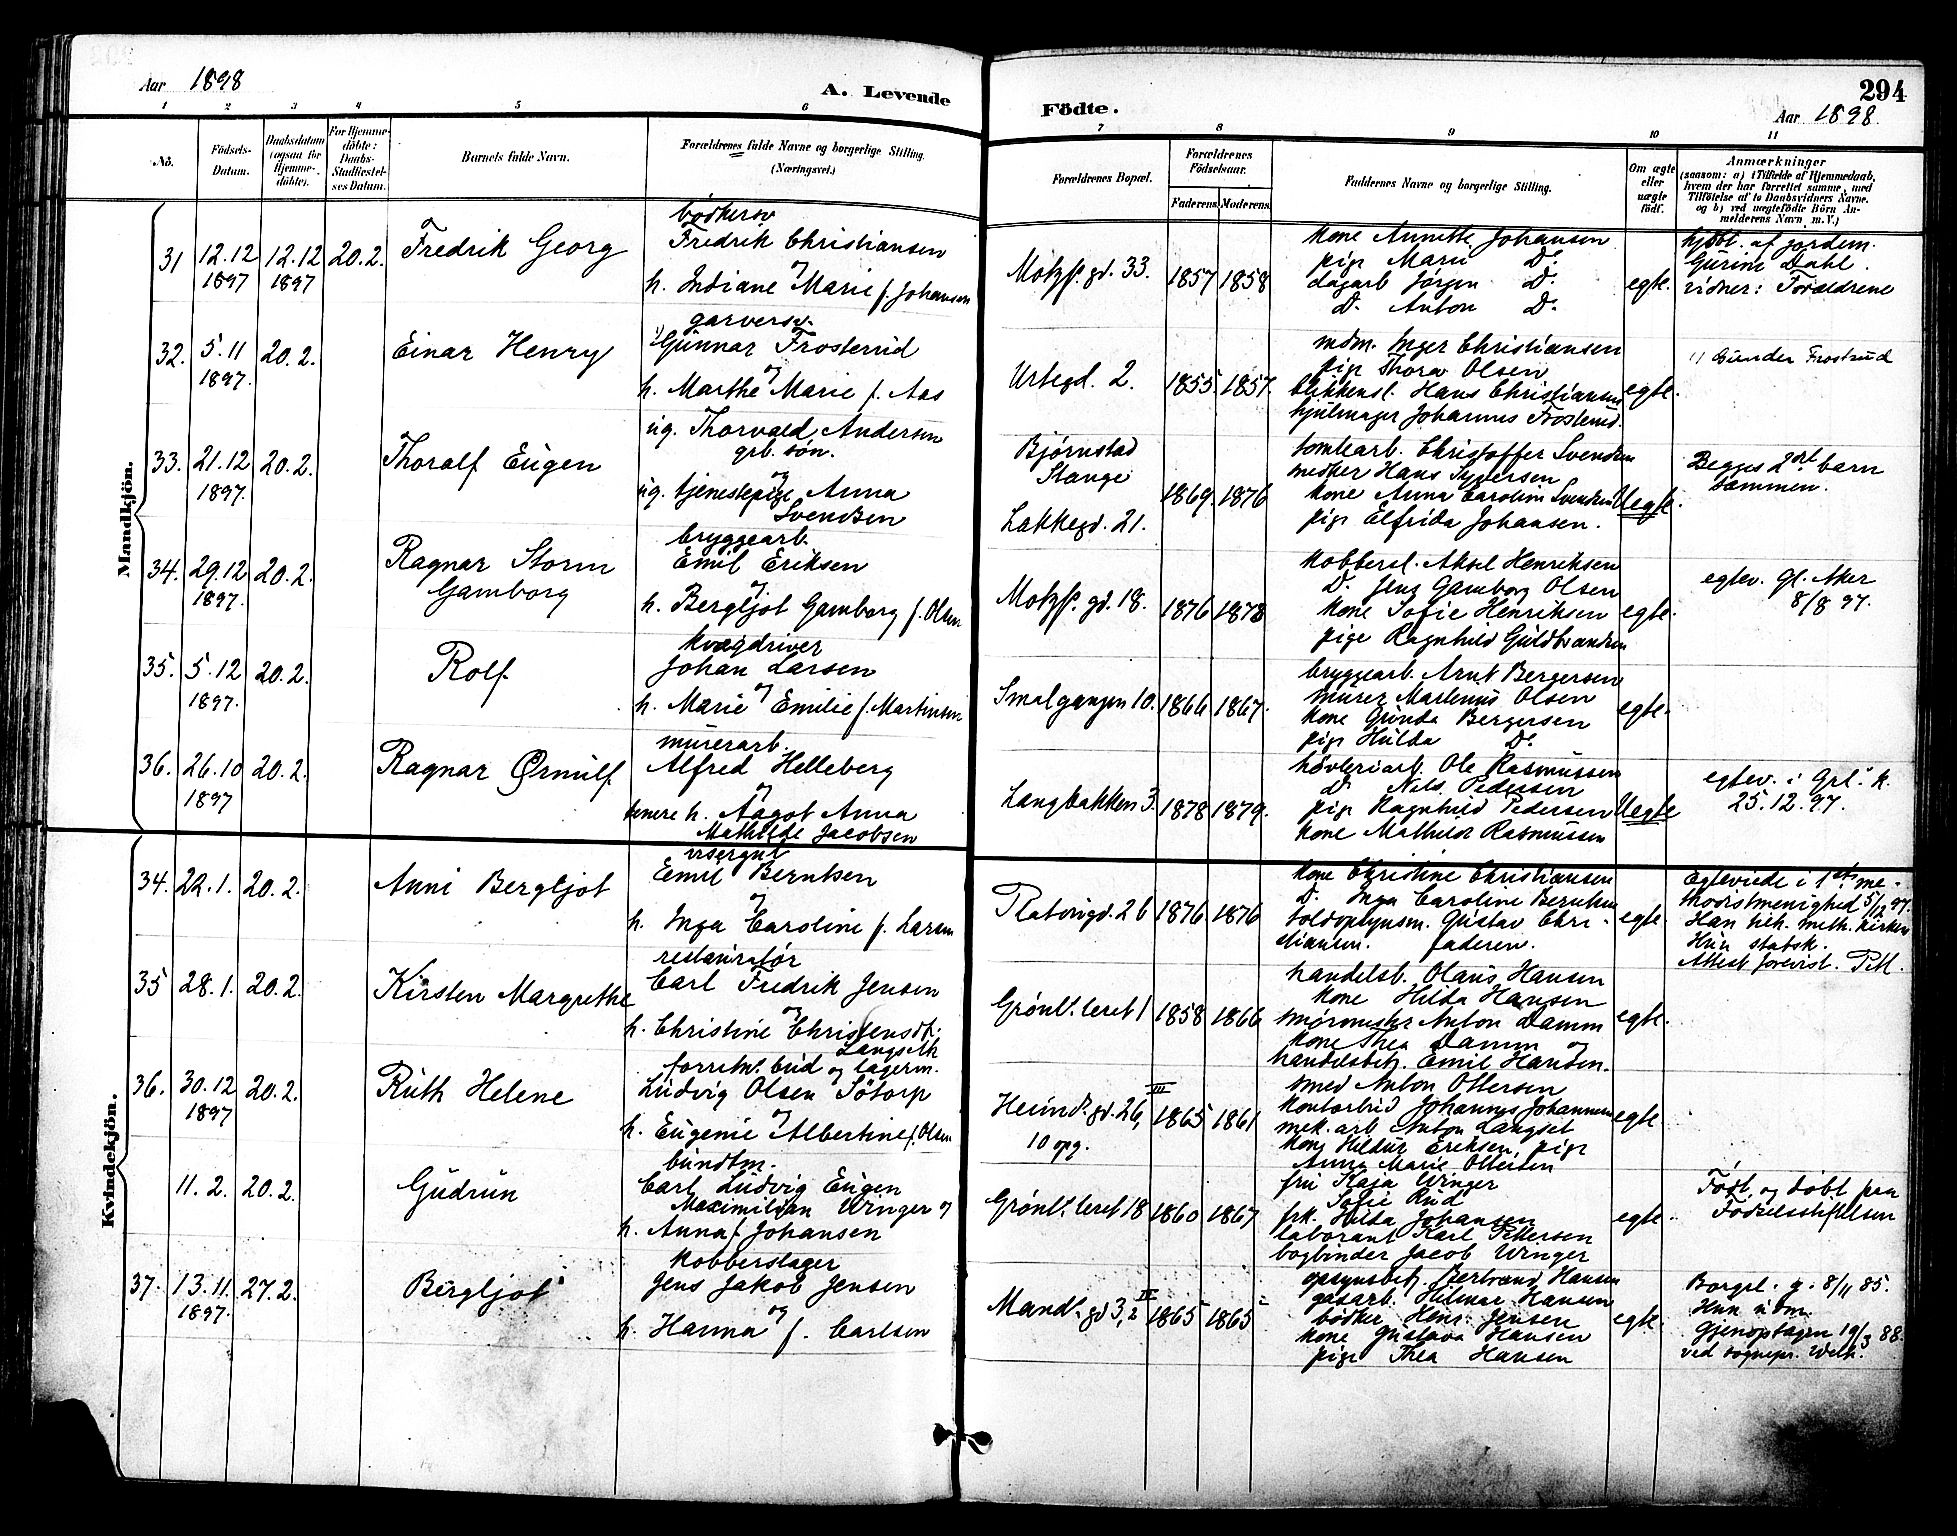 Aar 1898
A. Levende
1 2 3 4 5 6
No.
Födsels-Datum.
Daabsdatum (ogsaa for Hjemme-döbte).
For Hjemme-döbte: Daabs-Stadfæstel-ses Datum.
Barnets fulde Navn.
Forældrenes fulde Navne og borgerlige Stilling.
(Næringsvei.)
Mandkjön.
31 12.12 1897 12.12 1897 20.2. Fredrik Georg
bödkersv
Fredrik Christiansen
og
h. Indiane Marie f. Johansen
32. 5.11 1897. 20.2. Einar Henry
garversv.
1) Gunnar Frosterud
og
h. Marthe Marie f. Aas
33. 21.12 1897. 20.2. Thoralf Eugen
ug. Thorvald Andersen
grb. sön.
og
ug. tjenestepige Anna
Svendsen
34. 29.12 1897. 20.2. Ragnar Storm
Gamborg
bryggearb.
Emil Eriksen
og
h. Bergljot Gamborg f. Olsen
35. 5.12 1897. 20.2. Rolf
kvægdriver
Johan Larsen
og
h. Marie Emilie f. Martinsen
36. 26.10 1897 20.2. Ragnar Ørnulf
murerarb.
Alfred Helleberg
og
senere h. Aagot Anna
Mathilde Jacobsen
Kvindekjön.
34. 22.1. 20.2. Anni Bergljot
visergut
Emil Berntsen
og
h. Inga Caroline f. Larsen
35 28.1. 20.2. Kirsten Margrethe
restauratør
Carl Fredrik Jensen
og
h. Christine Christensdt.
Langseth
36. 30.12 1897 20.2. Ruth Helene
forretn. bud og lagerm.
Ludvig Olsen Sötorp
og
h. Eugenie Albertine f. Olsen
11.2. 20.2. Gudrun
bundtm.
Carl Ludvig Eugen
Maximilian Winger og
h. Anna f. Johansen
37. 13.11. 1897. 27.2. Bergljot
kobberslager
Jens Jakob Jensen
og
h. Hanna f. Carlsen
Födte.
294
Aar 1898.
7 8 9 10 11
Forældrenes Bopæl.
Forældrenes Födselsaar.
Faderens. Moderens.
Faddernes Navne og borgerlige Stilling.
Om ægte eller uægte födt.
Anmærkninger
(saasom: a) i Tilfælde af Hjemmedaab,
hvem der har forrettet samme, med
Tilföielse af to Daabsvidners Navne.
og b) ved uægtefödte Börn An-
melderens Navn m. V.)
Motzf. gd. 33. 1857 1858
kone Annette Johansen
pige Marie Do.
dagarb Jørgen Do.
Do. Anton Do.
egte.
hjdbt. af jordem.
Gurine Dahl.
vidner: Forældrene
Urtegd. 2. 1855 1857.
mdm. Inger Christiansen
pige Thora Olsen
blikkensl. Hans Christiansen
hjulmager Johannes Frosterud.
egte.
1) Gunder Frostrud
Bjørnstad
Stange
Lakkegd. 21.
1869. 1876
tomtearb. Christoffer Svendsen
snedker Hans Syversen
kone Anna Caroline Svendsen
pige Elfrida Johansen.
Uegte.
Begges 2det barn
sammen.
Motzf. gd. 18. 1876 1878
kobbersl. Aksel Henriksen
Do. Jens Gamborg Olsen
kone Sofie Henriksen
pige Ragnhild Guldbrandsen
egte.
egtev. Gl. Aker
8/8 97.
Smalgangen 10. 1866 1867.
bryggearb. Arnt Bergersen
murer Martenius Olsen
kone Gunda Bergersen
pige Hulda Do.
egte.
Langbakken 3. 1878 1879.
høvleriarb. Ole Rasmussen
Do. Nils Pedersen
pige Ragnhild Pedersen
kone Mathilde Rasmussen
Uegte
egtev. i Grl. k.
25.12.97.
Platougd. 26 1876 1876
kone Christine Christiansen
Do. Inga Caroline Berntsen
toldopsynsm. Gustav Chri-
stiansen. faderen.
egte.
Egteviede i 1ste me-
thodistmenighed 5/12 97.
Han tilh. meth. kirken
Hun statsk.
Attest forevist.
Grønl. leret 1 1858 1866
handelsb. Olaus Hansen
kone Hilda Hansen
Anton Damm
kone Thea Damm og
handelsbetj. Emil Hansen.
egte.
Heimd. gd. 26, III
10 opg.
1865 1861
smed Anton Ottersen
kontorbud Johannes Johannesen
mek. arb Anton Langset
kone Hildur Eriksen pige
Anna Marie Ottersen
egte.
Grønl. leret 18 1860 1867
fru Kaja Winger
Sofie Rud
frk. Hilda Johansen
laborant Karl Pettersen
bogbinder Jacob Winger
egte.
Født og døbt paa
Fødselsstiftelsen
Mandl. gd 3, 2 IV 1865 1865
opsynsbetj. Bertrand Hansen
gasarb. Hilmar Hansen
bødker Henr. Jensen
kone Gustava Hansen
pige Thea Hansen
egte.
Borgel. g. 8/11 85.
Hun udm.
Gjenoptagen 19/3 88.
ved sognepr. Welh.